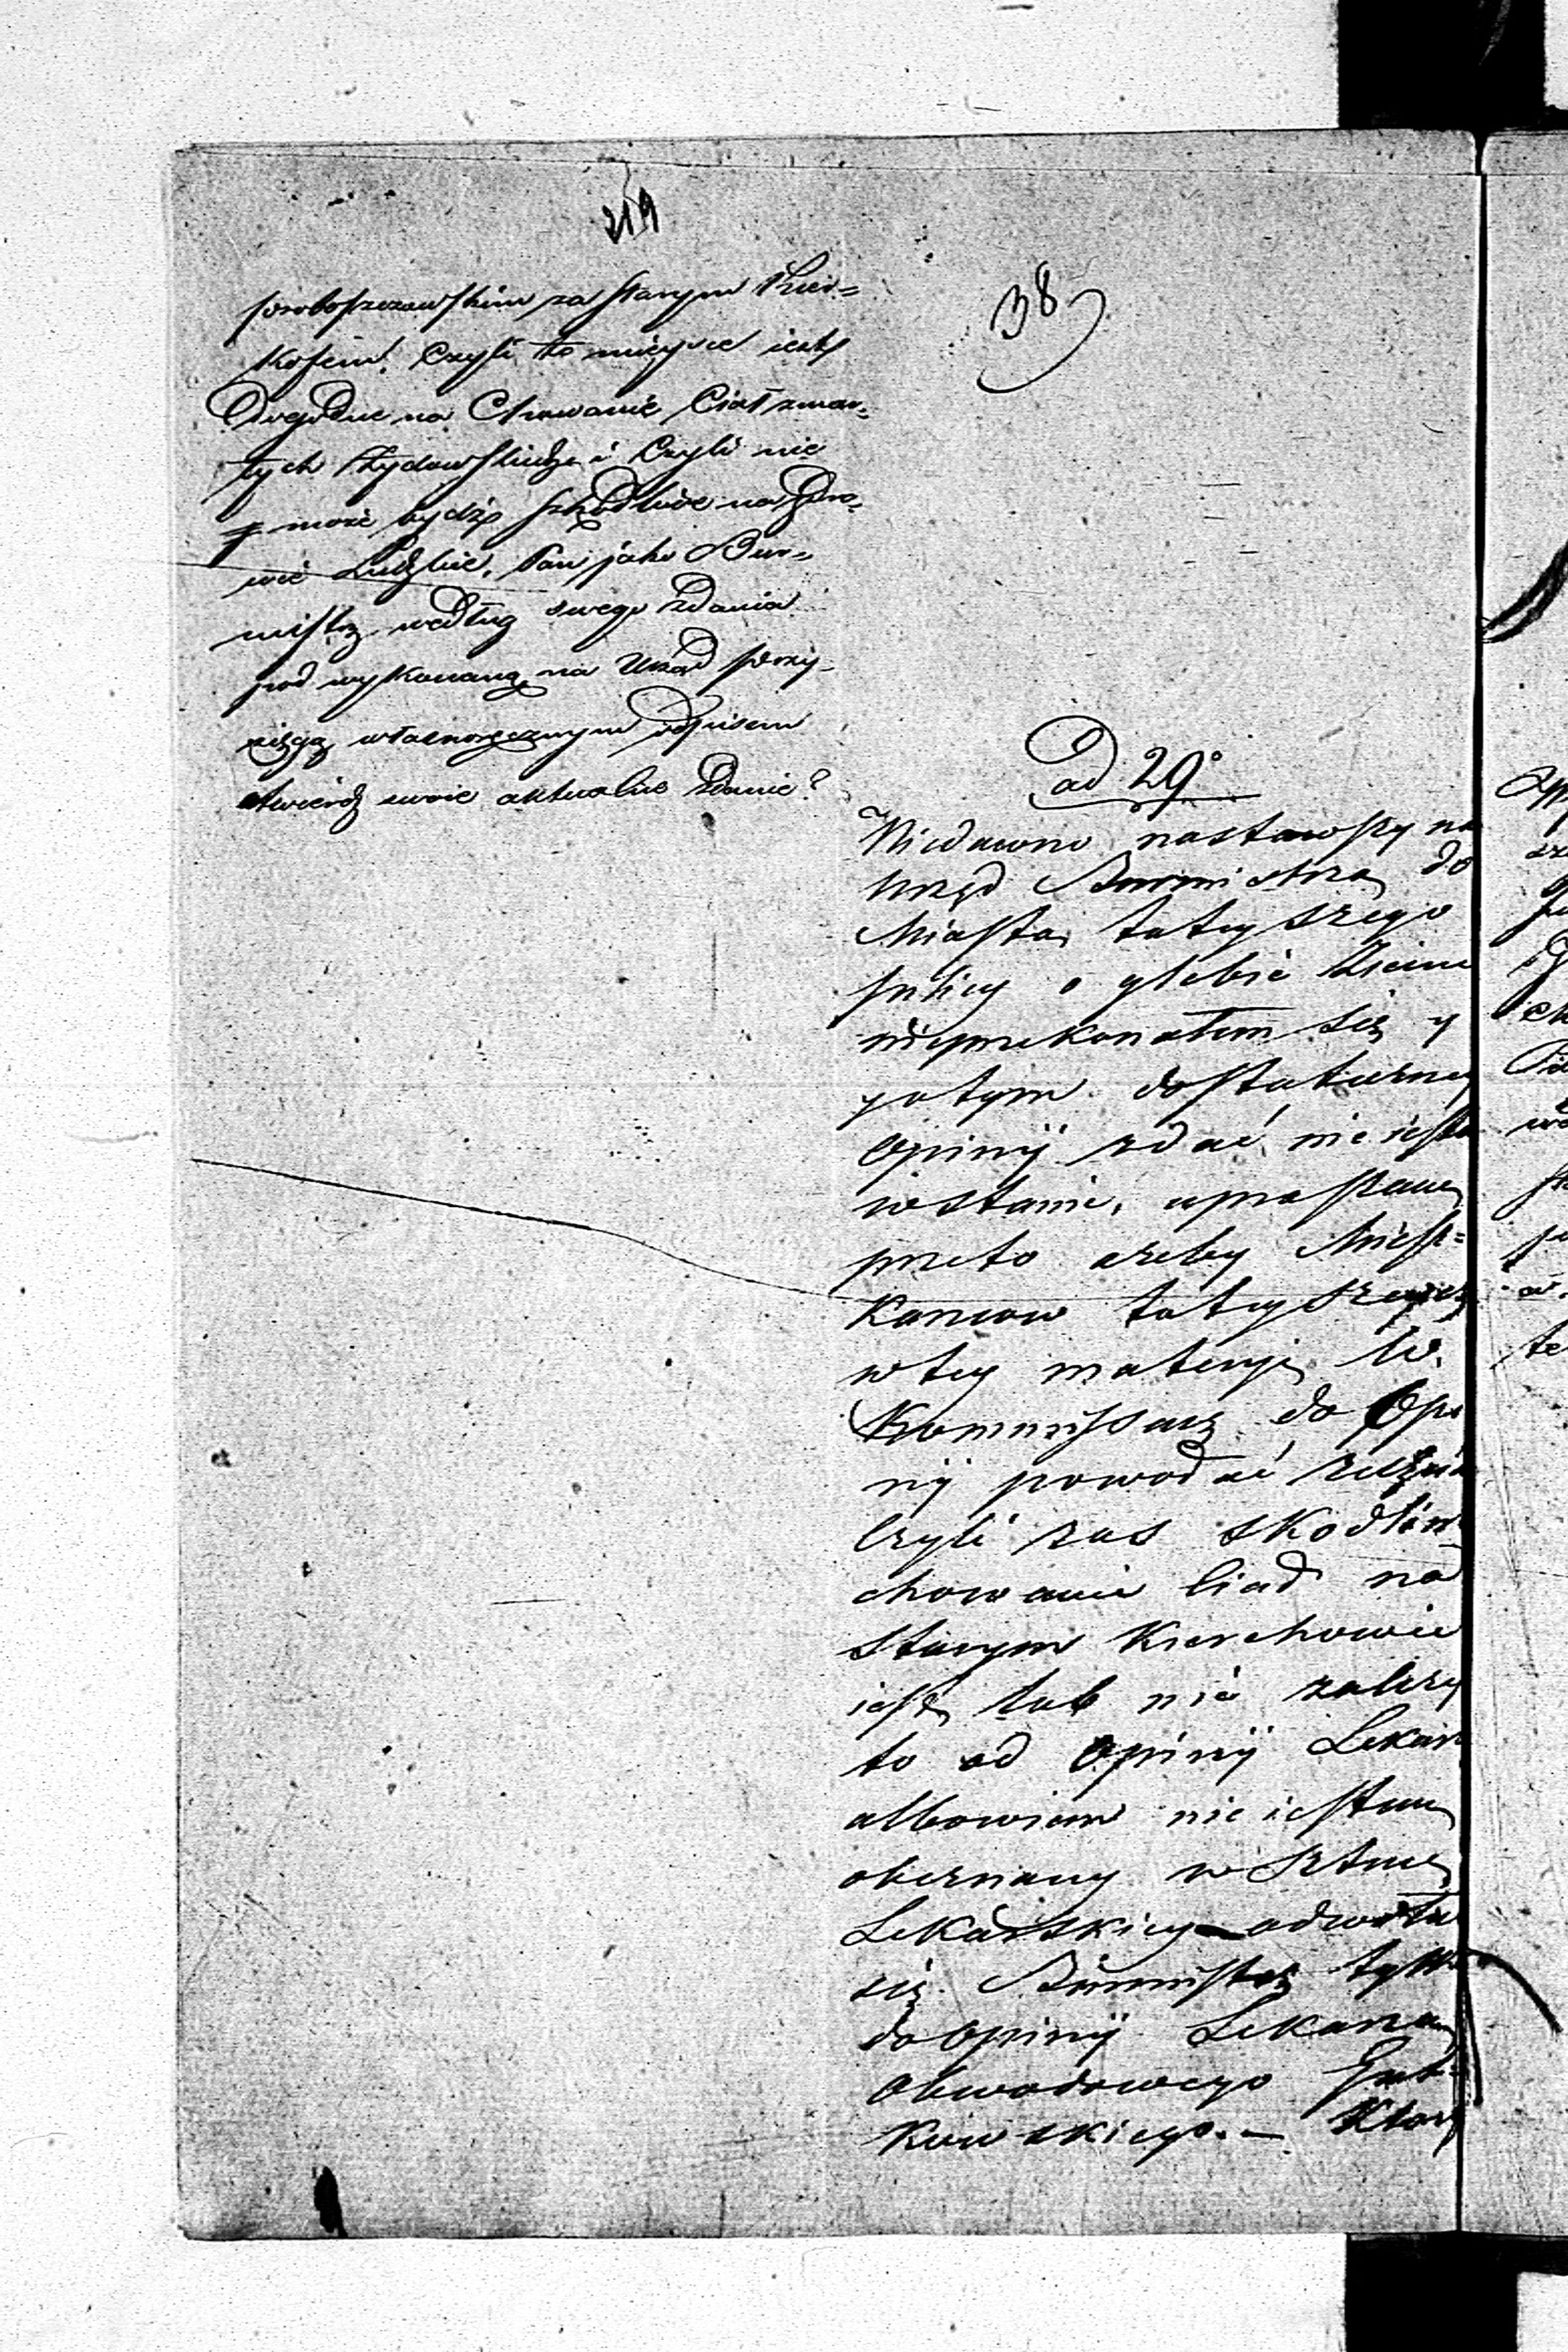 219
38
proboszczowskim za starym Kier=
kofem. Czyli to mieysce iest
Dogodne na Chowanie Ciał zmar=
łych Żydowskich i Czyli nie
może bydź szkodliwe na Zdro=
wie Ludzkie. Pan jako Bur=
mistrz według swego zdania
pod wykonaną na Urząd przy=
sięgą własnoręcznym
stwierdź swoie aktualne Zdanie?
ad 29°
Niedawno nastawszy na
Urząd Burmistrza do
Miasta tuteyszego
o glebie Ziemi
nieprzekonałem się y
potym dostateczney
Opinij zdać nie iest
wstanie, uprasza
przeto ażeby Miesz=
kancow tuteyszych
wtey materyi W.
Kommissarz do Opi
nij powodać
Czyli zas skodliw
chowanie Ciał na
starym Kierchowie
iest lub nie zależy
to od Opinij Lekarz
albowiem nie iestem
obeznany w Sztuce
Lekarskiey odwoła
się Burmistrz tylk
do Opinij Lekarza
Obwodowego
kowskiego. – Ktory